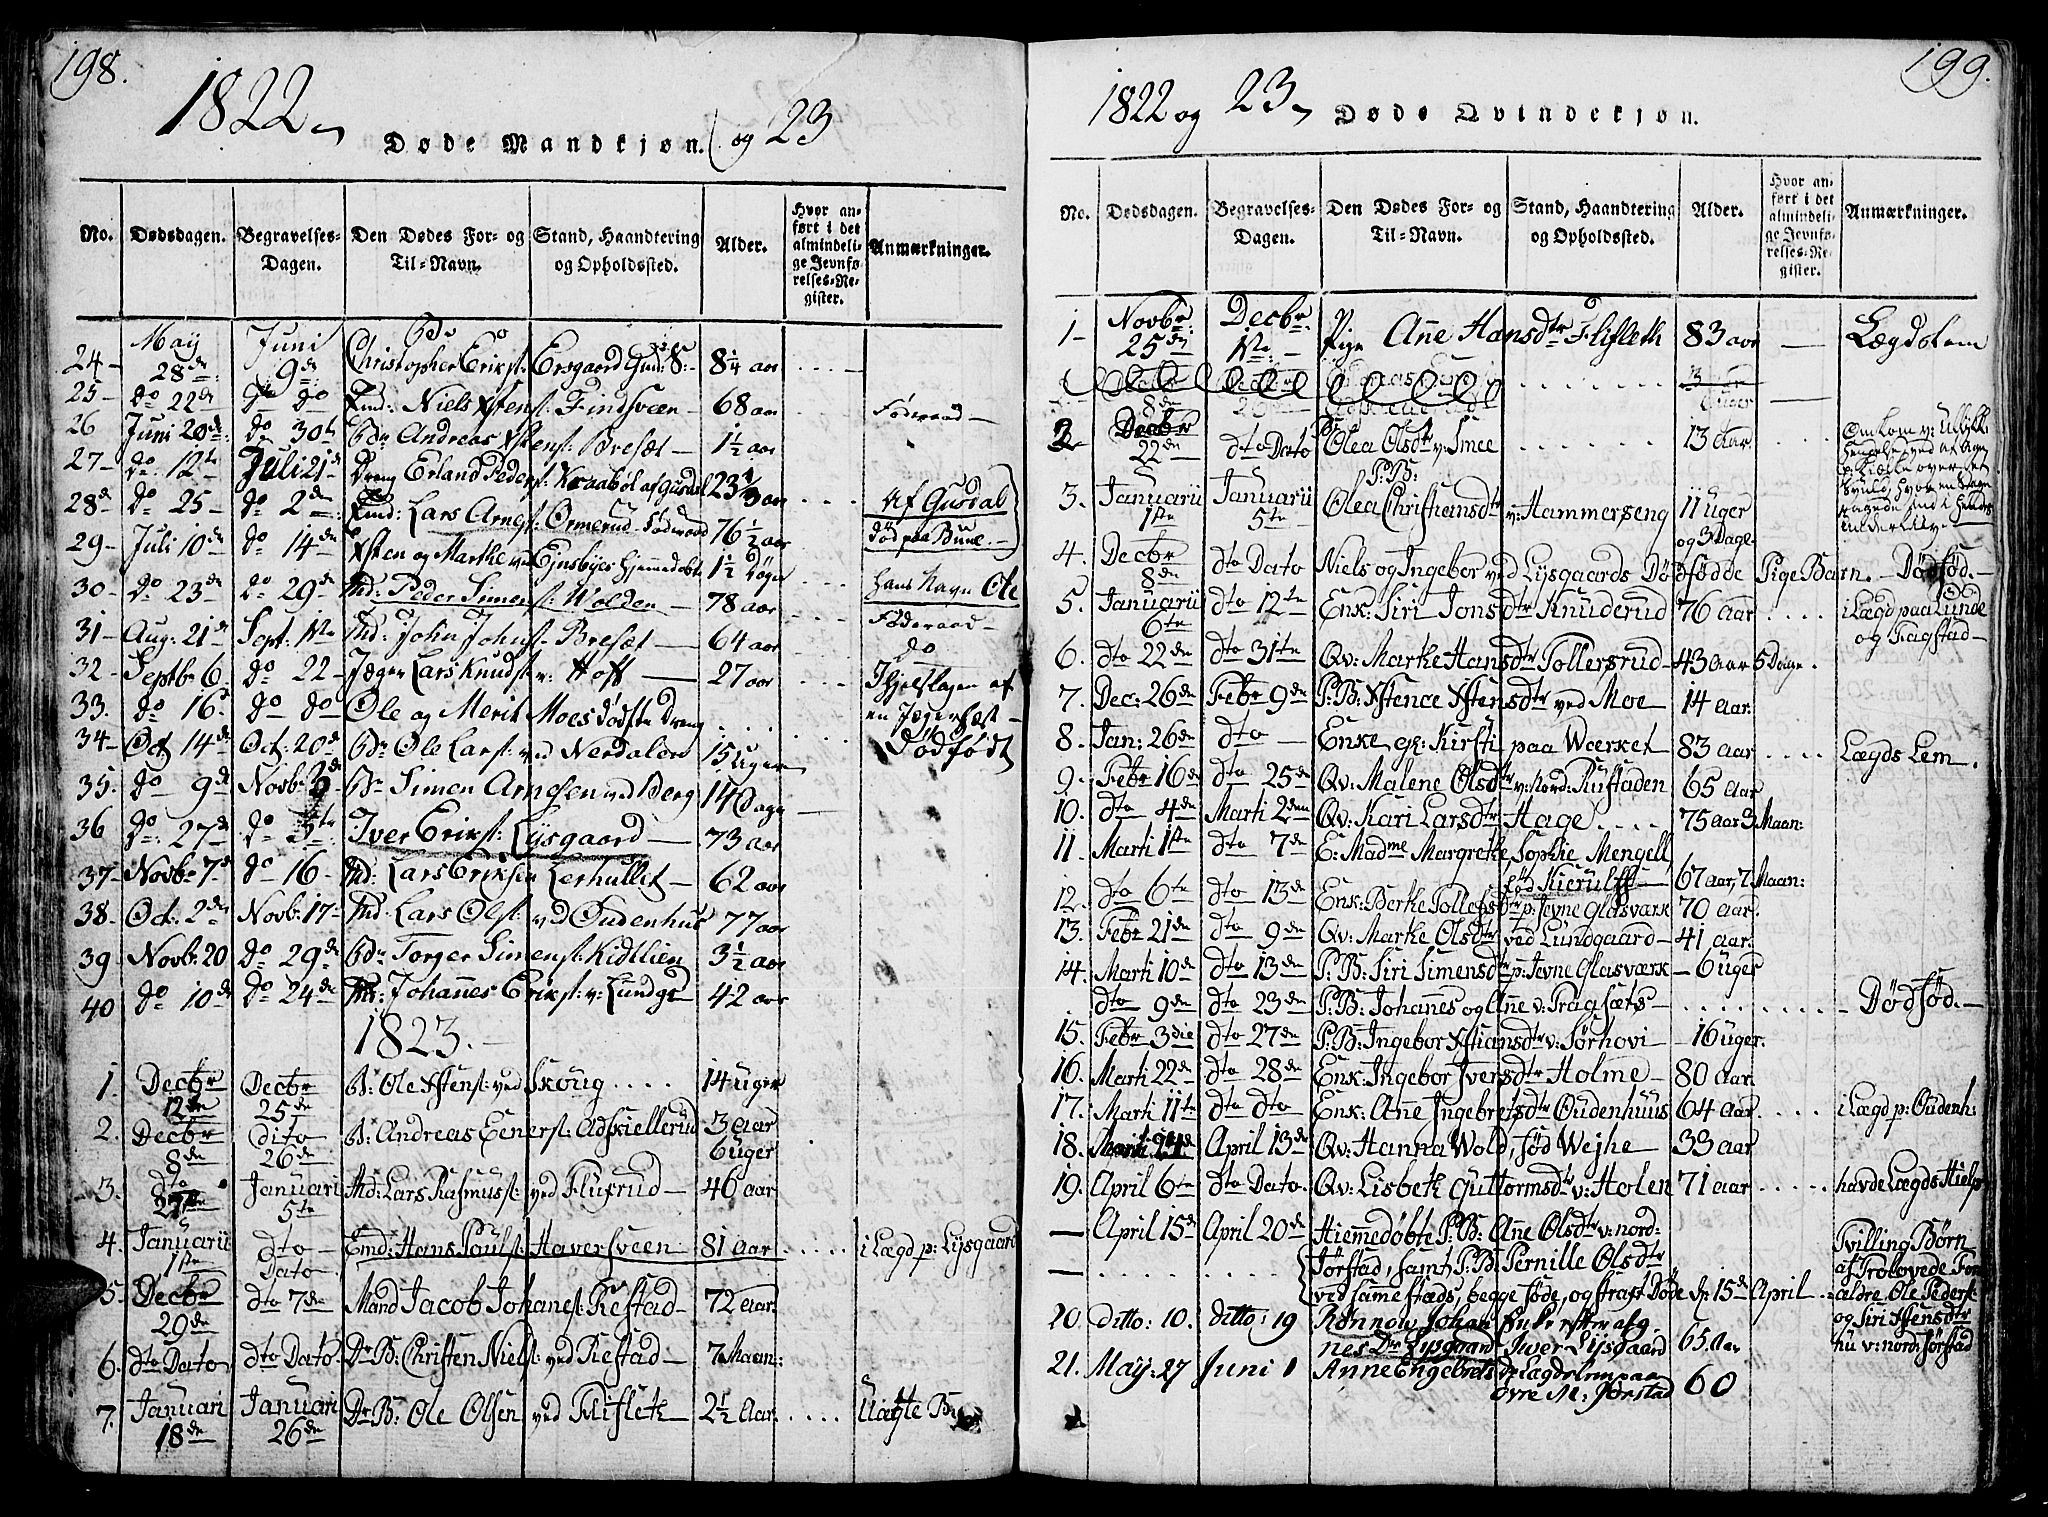 198.
1822 og 23
Døde Mandkjøn.
No. Dødsdagen. Begravelses-Dagen. Den Dødes For- og Til-Navn. Stand, Haandtering og Opholdssted. Alder. Hvor anført i det almindelige Jevnførelses-Register. Anmærkninger.
24 May 28de Juni 9de Christopher Erikss: Ersgaard 8 1/4 aar
25 do 22de do do Emd: Niels Xstens: Findsveen 68 aar Føderaad
26 Juni 20de do 30te Andreas Xstens: Bresæt 1 1/2 aar
27 do 12te Juli 21de Dreng Erland Peders: Kraabøl af Gusdal 23 aar
28de do 25 do 2den Emd: Lars Arnes: Ormerud Føderaad 76 1/2 aar Af Gusdal død paa Bune.
29 Juli 10de do 14de Xsten og Marthe ved Ejnsbyes Hjemmedøbte 1 1/2 Døgn hans Navn Ole
30 do 23de do 29de Md: Peder Simens: Wolden 78 aar Føderaad
31 Aug: 21de Sept: 1ste Md: John Johns: Bresæt 64 aar do
32 Septbr 6 do 22 Jæger Lars Knuds: v: Hoff 27 aar Ihjelslagen af en Jægerhest
33. do 16 do do Ole og Merit Moes dødfødte Dreng Dødfødt
34 Oct 14de Oct: 20de Ole Lars: ved Nerdalen 15 Uger
35. do 9de Novbr 3de Simen Arnesen ved Berg 14 Dage
36 do 27de do Iver Eriks: Lysgaard 73 aar
37 Novbr 7de do 16 Md: Lars Eriksen Lerhullet 62 aar
38. Oct: 2den Novb: 17 Md: Lars Ols: ved Oudenhus 77 aar
39 Novbr 20 do 29de Torger Simens: Kidtlien 3 1/2 aar
40 do 10de do 24de Johannes Eriks: v: Lundg 42 aar
1823.
1. Decbr 12de Decbr 25de Ole Xstens: ved Skoug 14 Uger
2. Decbr 8de dito 26de Andreas Eeners: Adskiellerud 3 Aar 6 Uger
3. dto 27de Januari 5te Md: Lars Rasmuss: ved Flufrud 46 aar
4. Januarii 1ste dto Dato Emd: Hans Pauls: Haversveen 81 Aar i Lægd p: Lysgaard
5. Decbr 29de dto 7de Mand Jacob Johans: Restad 72 Aar.
6. dto Dato dto Dato Dr: B: Christen Niels: ved Restad 7 Maan:
7. Januari 18de Januari 26de Dr: B: Ole Olsen ved Flifleth 2 1/2 Aar. Uægte B
199.
1822 og 23
Døde Qvindekjøn.
No. Dødsdagen. Begravelses-Dagen. Den Dødes For- og Til-Navn. Stand, Haandtering og Opholdssted. Alder. Hvor anført i det almindelige Jevnførelses-Register. Anmærkninger.
1 Novbr 25de Decbr 1ste Pige Anne Hansdtr Flifleth 83 aar Lægdslem
2 Decbr 22de dto Dato Olea Olsdtr v: Smee 13 Aar
3. Januarii 1ste Januarii 5te P:B: Olea Christiansdtr v: Hammerseng 11 Uger og 3 Dage
4. Decbr 8de dto Dato Niels og Ingebor ved Lysgaards Dødfødde Pige Barn. Dødfød.
5. Januarii 6te dto 12te Enk: Siri Jonsdtr Knuderud 76 aar i Lægd paa Lunde og Fragstad
6. dto 22de dto 31te Qv: Marthe Hansdtr Tollersrud 43 Aar 5 Dage.
7. Dec: 26de Febr 9de P:B: Xstence Xstensdtr ved Moe 14 Aar.
8. Jan: 26de dto Enke Kirsti paa Wærket 83 aar Lægds Lem.
9. Febr 16de dto 25de Qv: Malene Olsdtr v: Nord: Rustaden 65 Aar
10. dto 4de Marti 2den Qv: Kari Larsdtr Hage 75 aar 3 Maan:
11 Marti 1ste dto 7de E: Madme Margrethe Sophie Mengell fød Kierulff 67 aar, 7 Maan:
12. dto 6te dto 13de Enk: Berthe Tollefsdtr p: Jevne Glasværk 70 aar.
13. Febr 21de dto 9de Qv: Marthe Olsdtr ved Lundgaard 41 aar.
14. Marti 10de dto 13de P:B: Siri Simensdtr p: Jevne Glasværk 6 Uger
dto 9de dto 23de P:B: Johannes og Ane v: Fragsæts Dødfød.
15. Febr 3die dto 27de P:B: Ingebor Xstiansdtr v: Sørhovi 16 Uger.
16. Marti 22de dto 28de Enk: Ingebor Iversdtr Holme 80 Aar.
17. Marti 11te dto dto Enk: Anne Ingebretsdtr Oudenhuus 64 Aar i Lægd p: Oudenh:
18. Marti April 13de Qv: Hanna Wold, fød Wejhe 33 aar
19. April 6te dto Dato. Qv: Lisbeth Guttormsdtr v: Holen 71 aar havde Lægds Hielp
April 15de April 20de Hiemmedøbte P:B: Ane Olsdtr v: nord:
Jørstad, samt P:B: Pernille Olsdtr
ved samme Steds, begge føde, og strax Døde d: 15de April
Tvilling Børn af Trolovede Forældre, Ole Peders: og Siri Xstensdtr nu v: nord: Jørstad
20. ditto: 10. ditto: 19 Rønnow Johannes Dr Lysgaard Enke efter afg. Iver Lysgaard 65 Aar
21. May: 27 Juni 1 Anne Engebrets Dr Lægdslem paa øvre M: Jørstad 60